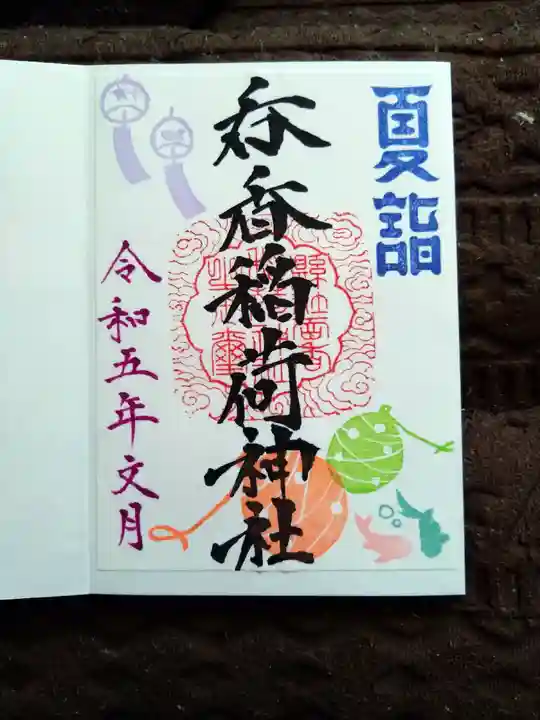 夏詣
呑香稲荷神社
令和五年文月